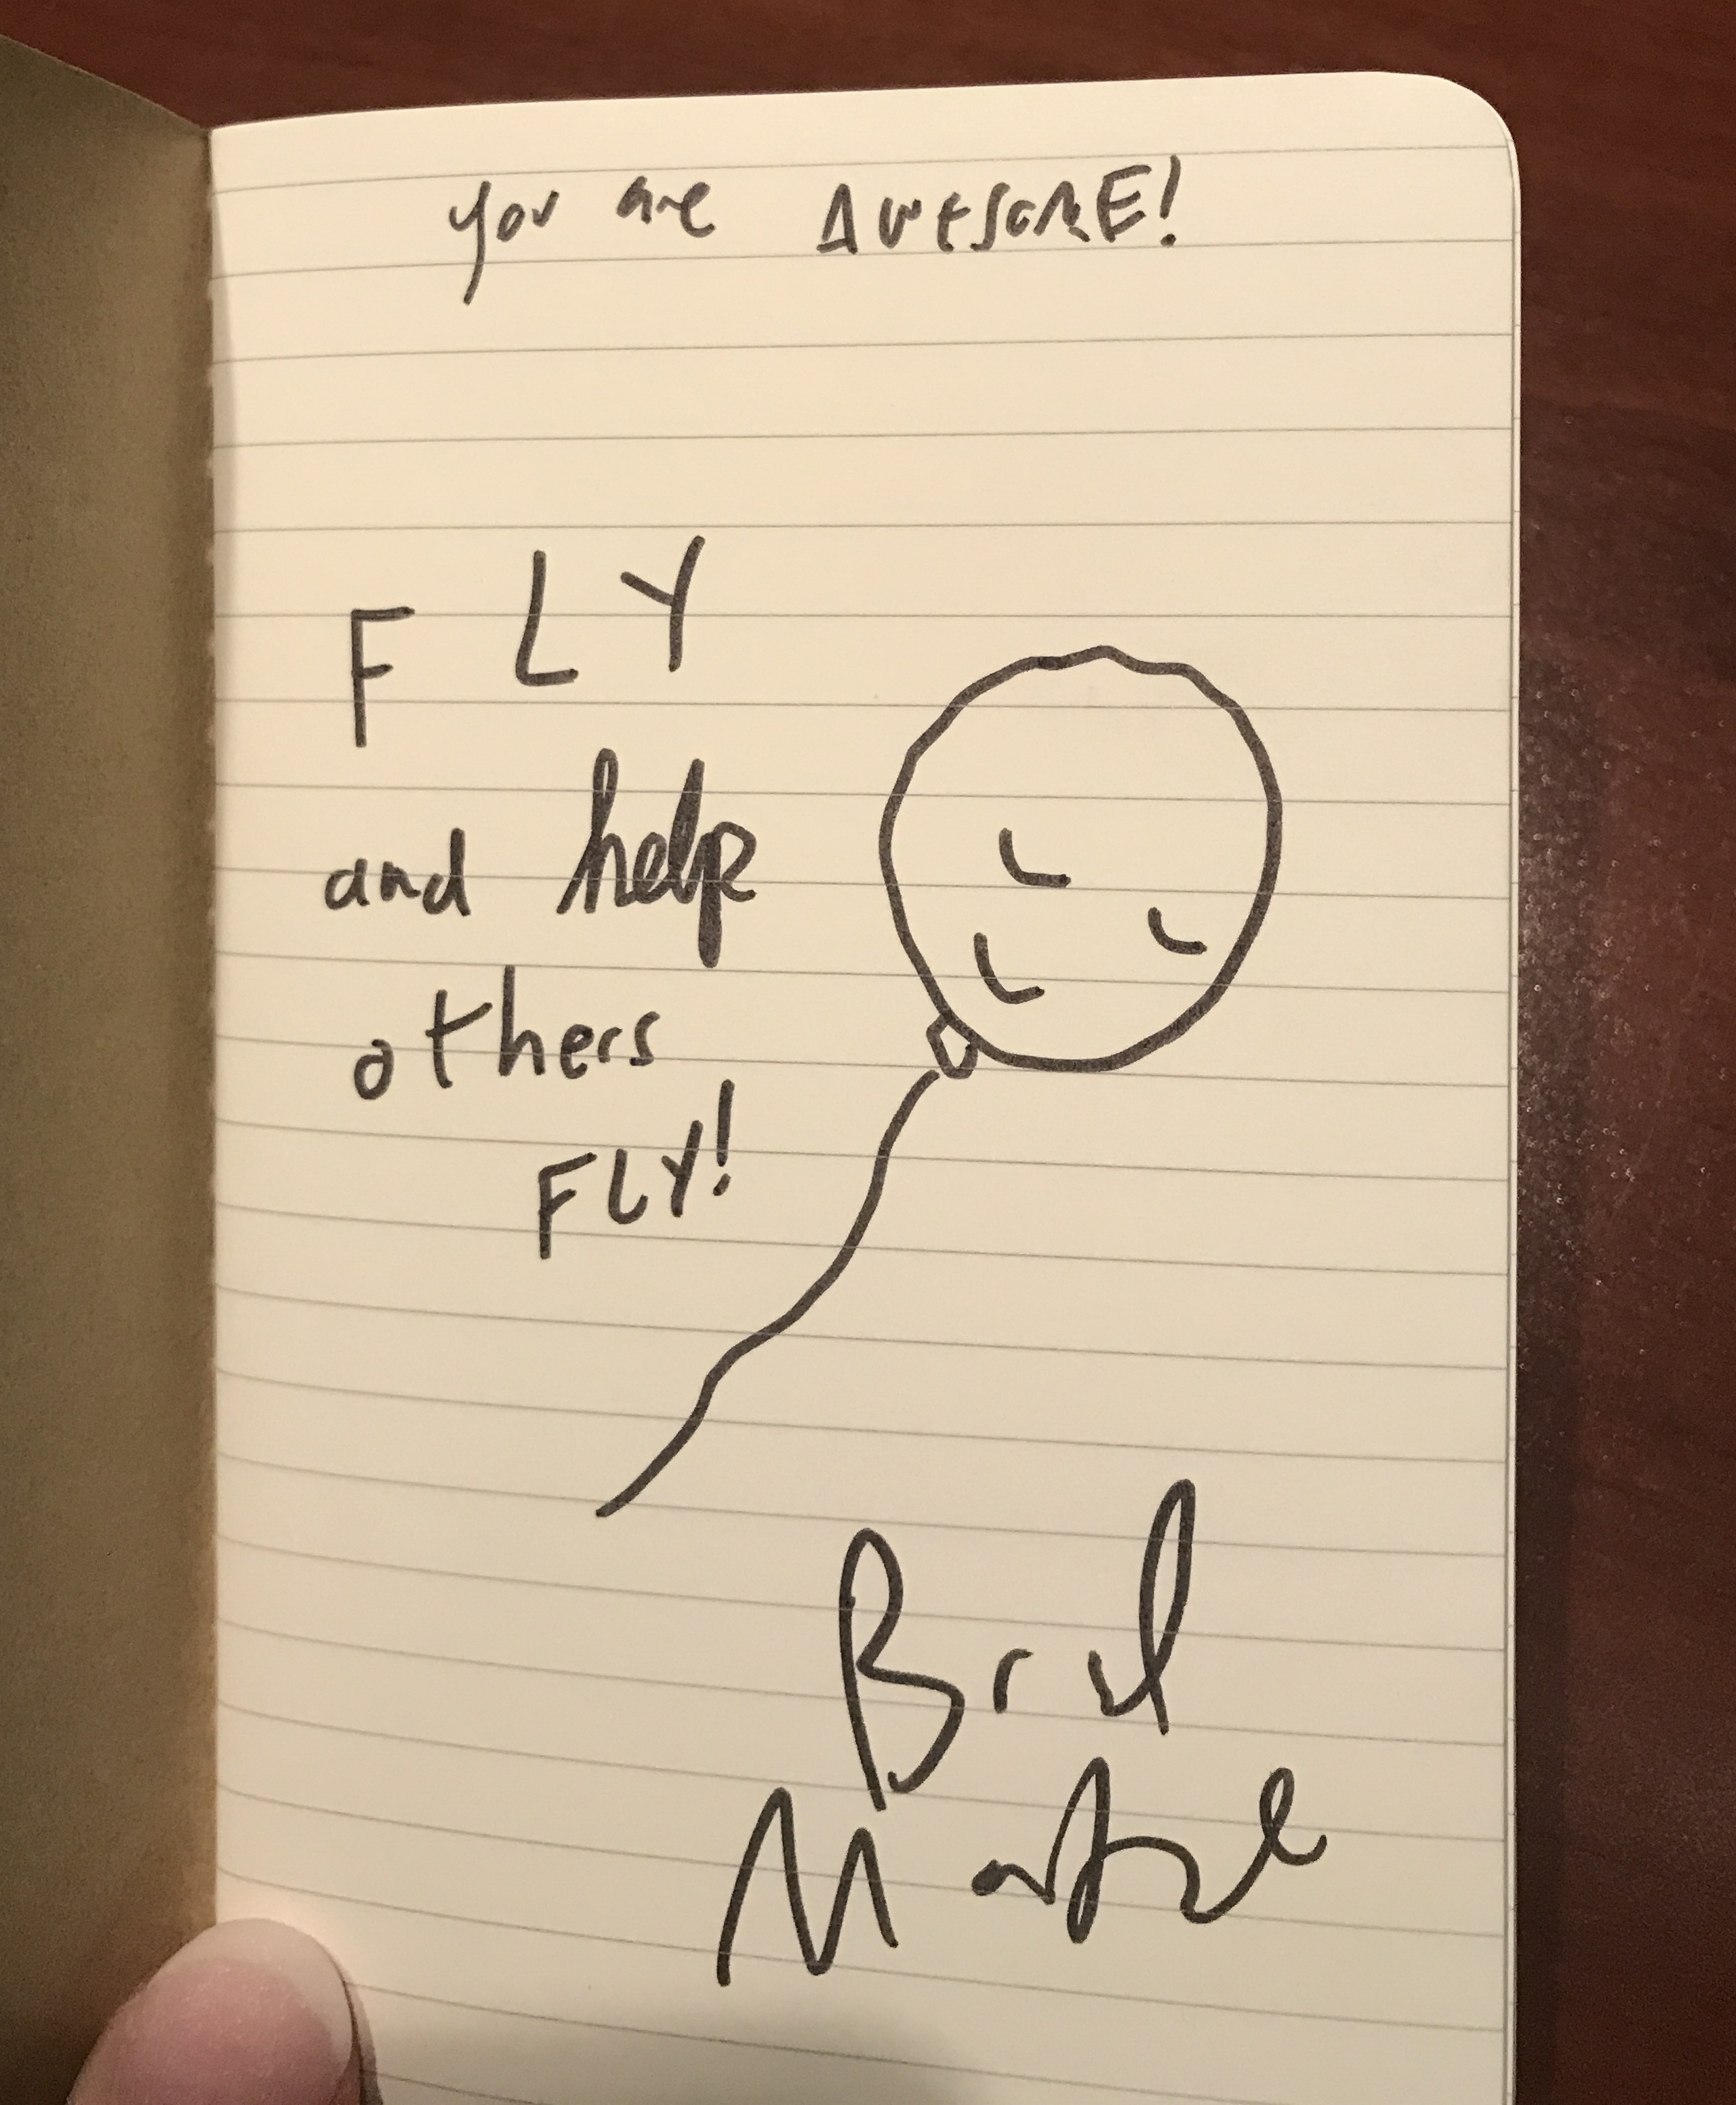 you are AWESOME!
FLY
and help
others
FLY!
Brad